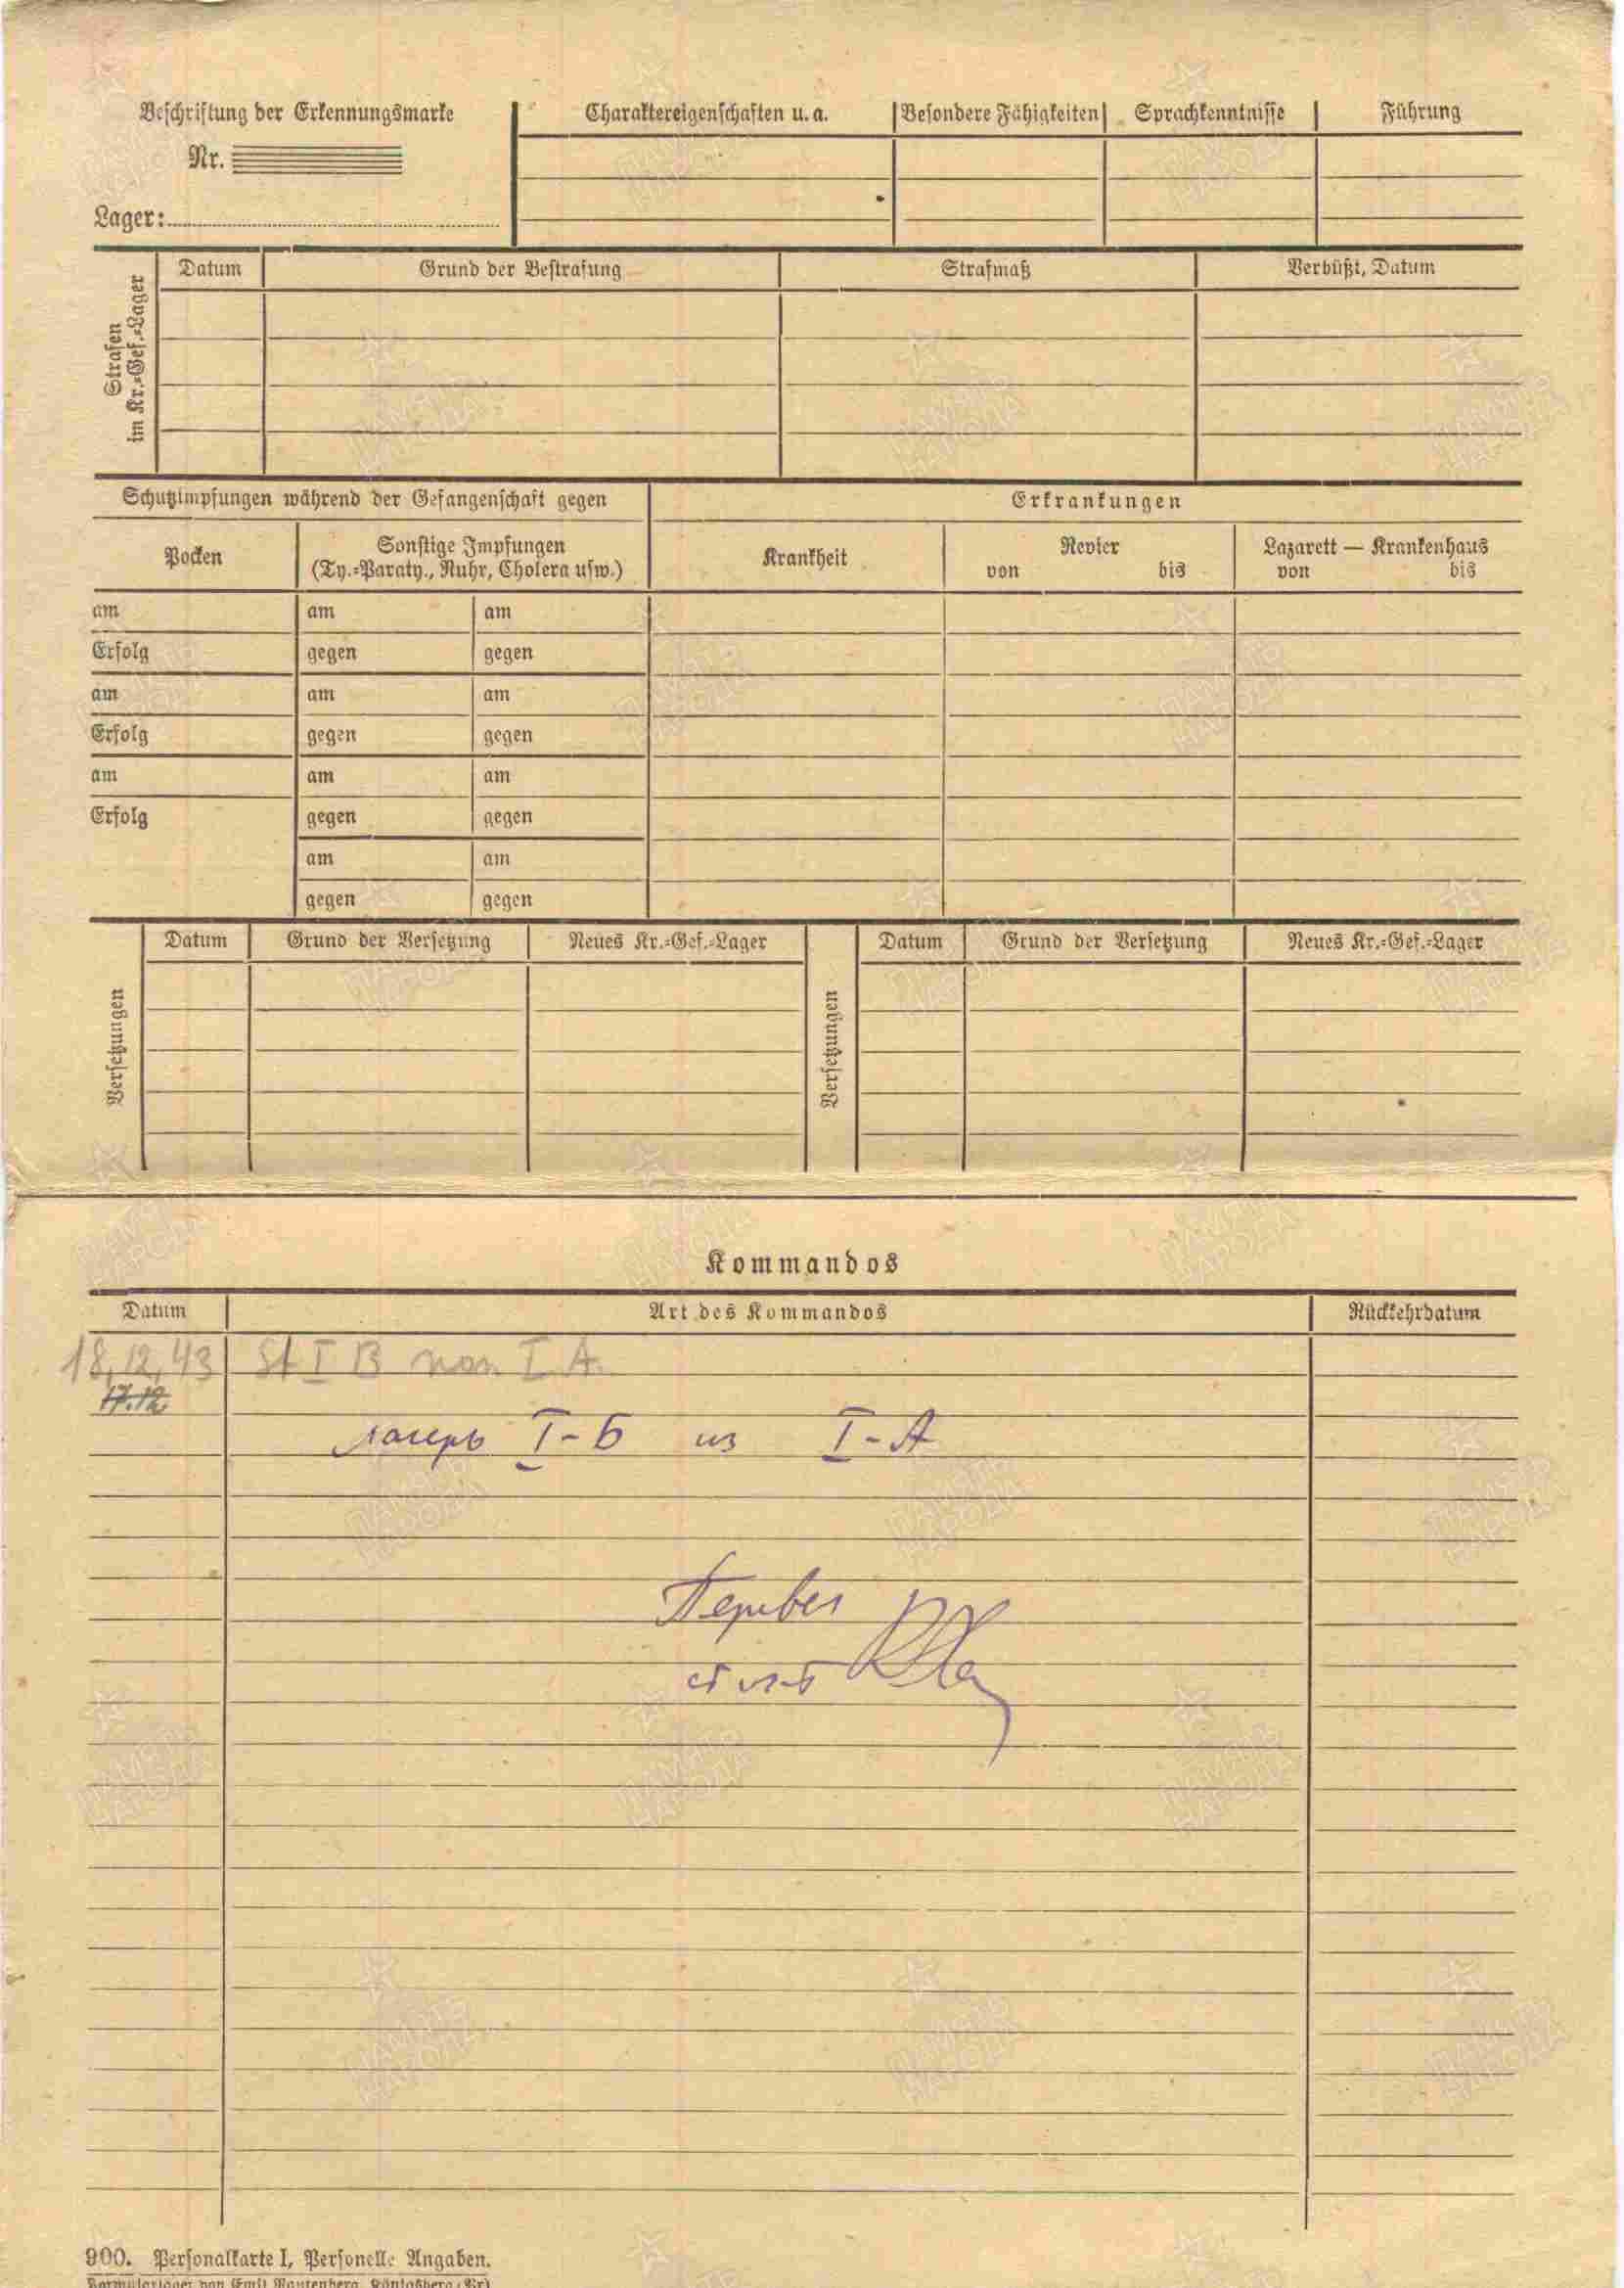 Beschriftung der Erkennungsmarke
Nr.
Lager:
Charaktereigenschaften u. a.
Besondere Fähigkeiten
Sprachkenntnisse
Führung
Strafen
im Kr.=Gef.=Lager
Datum
Grund der Bestrafung
Strafmaß
Verbüßt, Datum
Schutzimpfungen während der Gefangenschaft gegen
Erkrankungen
Pocken
Sonstige Impfungen
(Ty.=Paraty., Ruhr, Cholera usw.)
Krankheit
Revier
von bis
Lazarett — Krankenhaus
von bis
am am am
Erfolg gegen gegen
am am am
Erfolg gegen gegen
am am am
Erfolg gegen gegen
am am
gegen gegen
Versetzungen
Datum
Grund der Versetzung
Neues Kr.=Gef.=Lager
Versetzungen
Datum
Grund der Versetzung
Neues Kr.=Gef.=Lager
Kommandos
Datum
Art des Kommandos
Rückkehrdatum
18.12.43 St I B von I A.
17.12.
лагерь I-Б из I-А
Перевел
900. Personalkarte I, Personelle Angaben.
Formularlager von Emil Rautenberg, Königsberg (Pr)
ПАМЯТЬ
НАРОДА